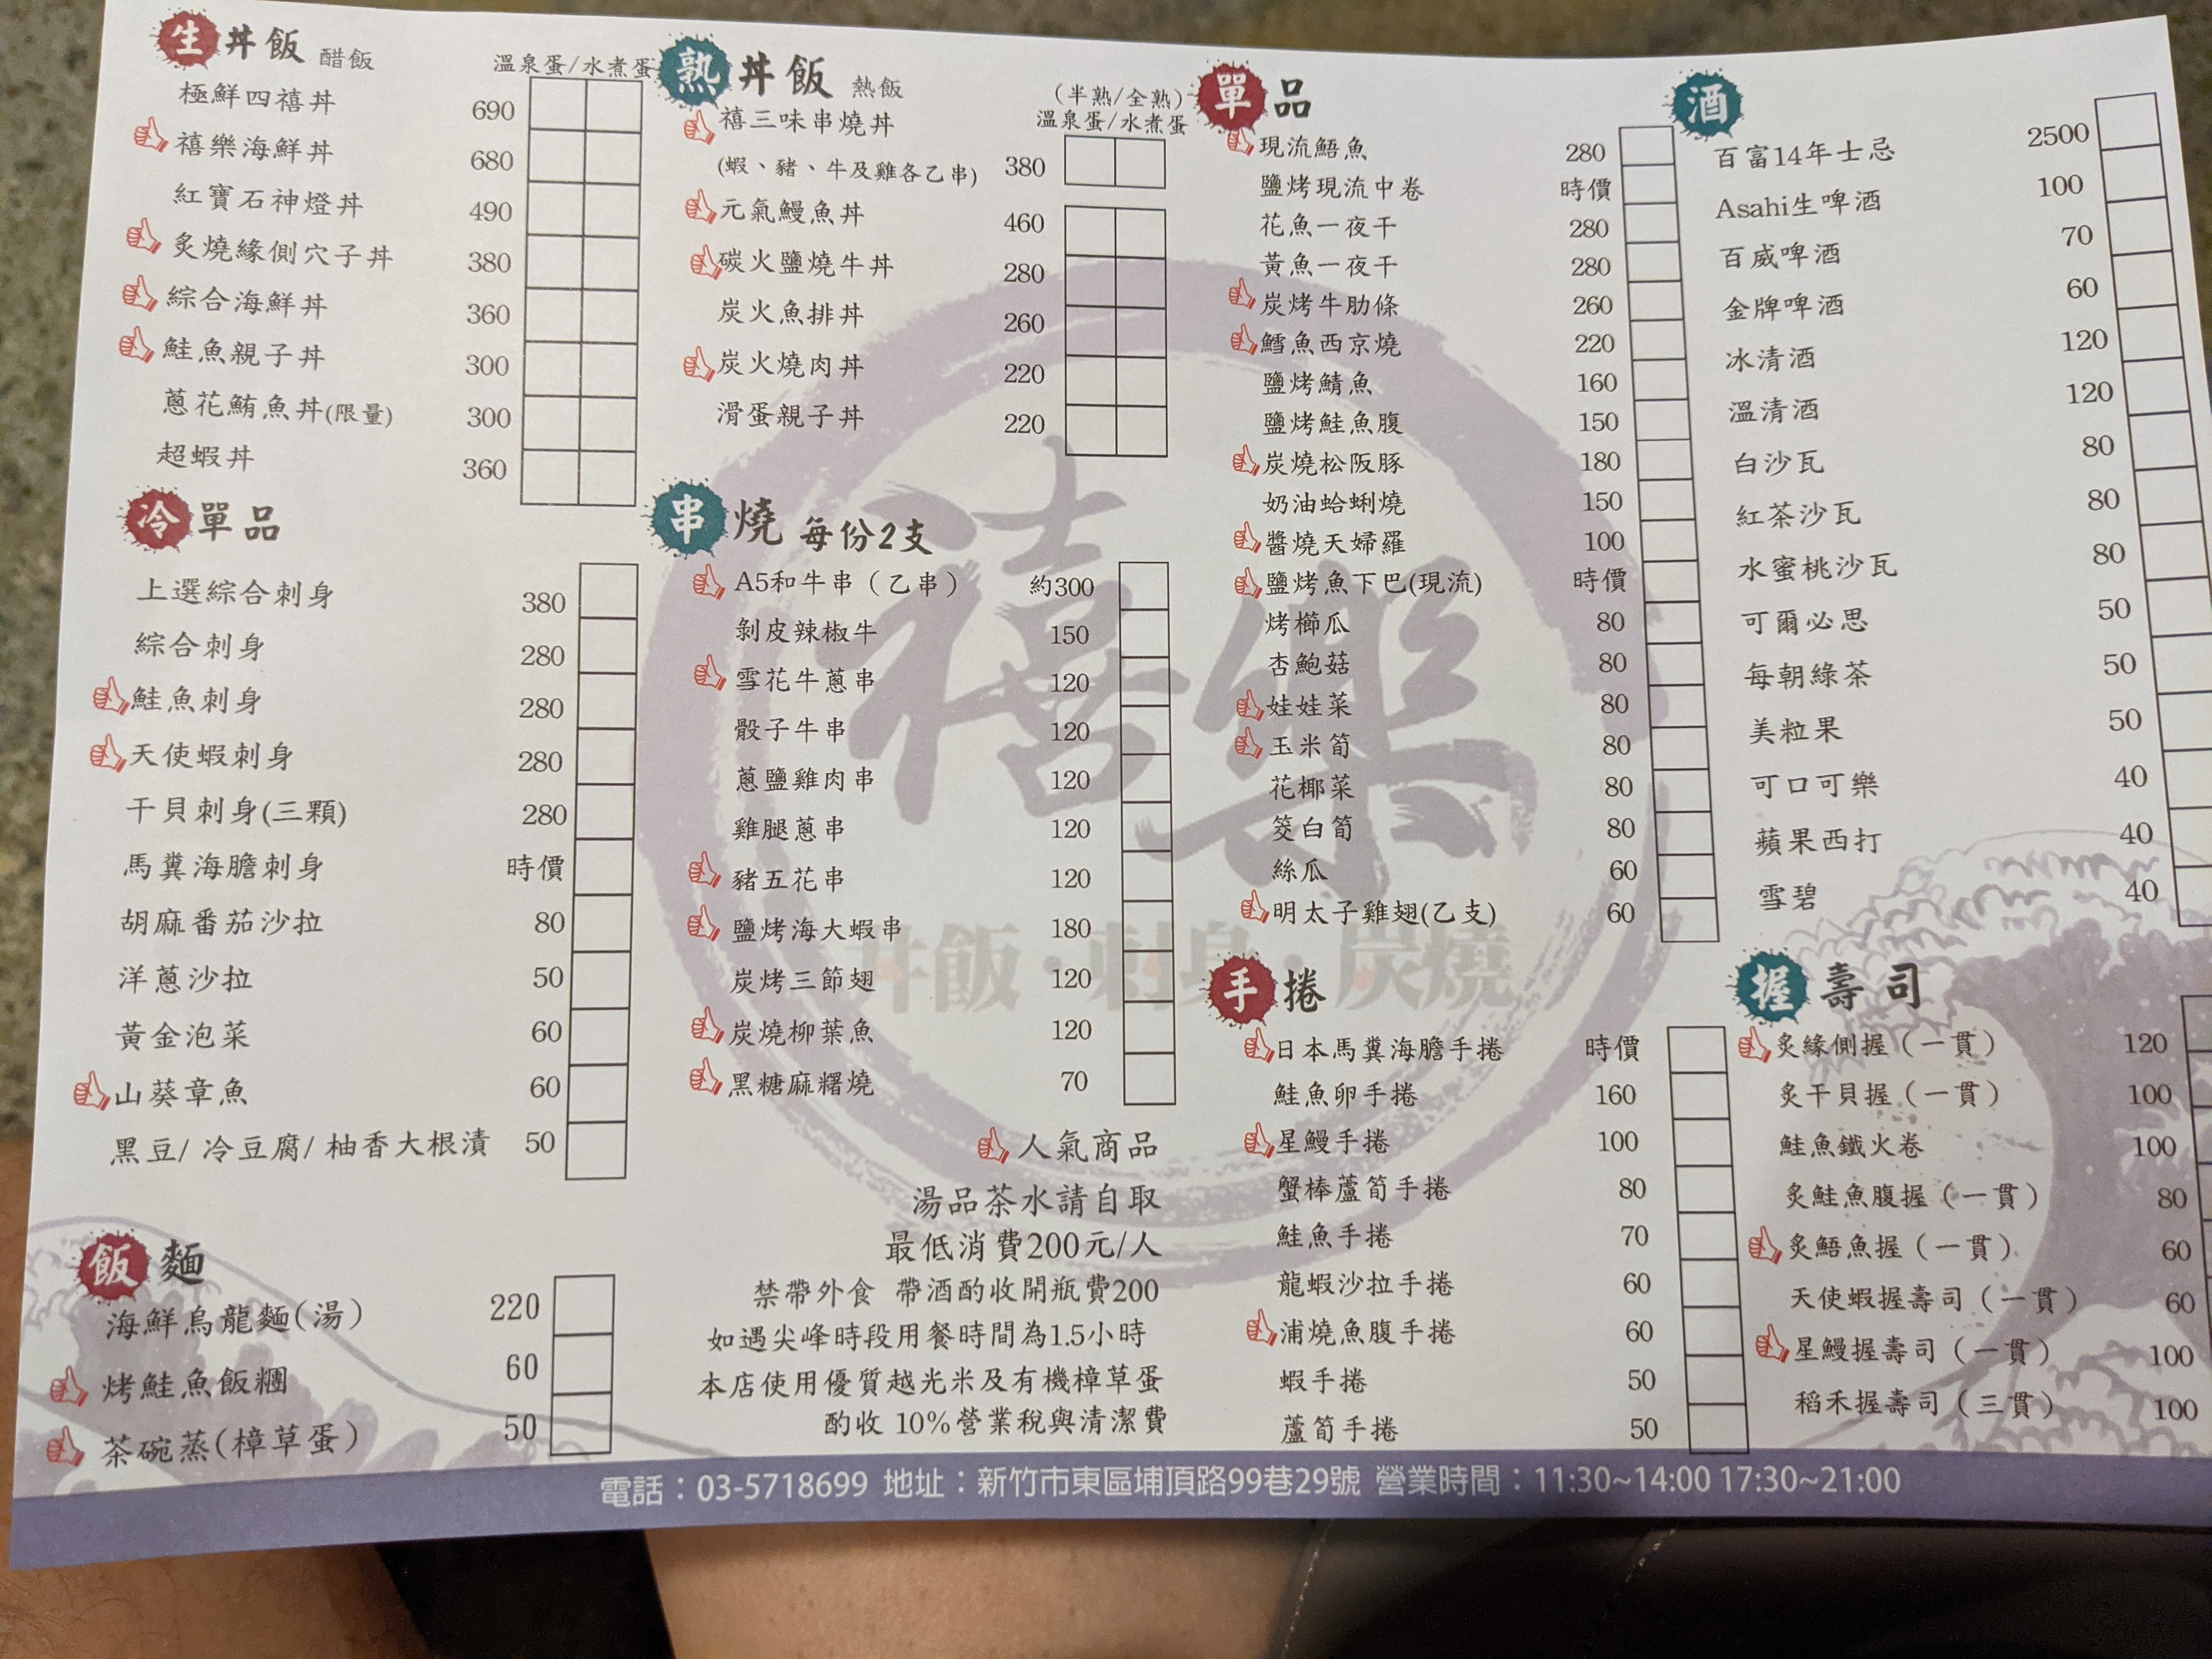 生丼飯 醋飯 溫泉蛋/水煮蛋
極鮮四禧丼 690
禧樂海鮮丼 680
紅寶石神燈丼 490
炙燒緣側穴子丼 380
綜合海鮮丼 360
鮭魚親子丼 300
蔥花鮪魚丼(限量) 300
超蝦丼 360
冷單品
上選綜合刺身 380
綜合刺身 280
鮭魚刺身 280
天使蝦刺身 280
干貝刺身(三顆) 280
馬糞海膽刺身 時價
胡麻番茄沙拉 80
洋蔥沙拉 50
黃金泡菜 60
山葵章魚 60
黑豆/ 冷豆腐/ 柚香大根漬 50
飯麵
海鮮烏龍麵(湯) 220
烤鮭魚飯糰 60
茶碗蒸(樟草蛋) 50
熟丼飯 熱飯
(半熟/全熟)
溫泉蛋/水煮蛋
禧三味串燒丼
(蝦、豬、牛及雞各乙串) 380
元氣鰻魚丼 460
碳火鹽燒牛丼 280
炭火魚排丼 260
炭火燒肉丼 220
滑蛋親子丼 220
串燒 每份2支
A5和牛串（乙串） 約300
剝皮辣椒牛 150
雪花牛蔥串 120
骰子牛串 120
蔥鹽雞肉串 120
雞腿蔥串 120
豬五花串 120
鹽烤海大蝦串 180
炭烤三節翅 120
炭燒柳葉魚 120
黑糖麻糬燒 70
人氣商品
湯品茶水請自取
最低消費200元/人
禁帶外食 帶酒酌收開瓶費200
如遇尖峰時段用餐時間為1.5小時
本店使用優質越光米及有機樟草蛋
酌收 10%營業稅與清潔費
單品
現流鯃魚 280
鹽烤現流中卷 時價
花魚一夜干 280
黃魚一夜干 280
炭烤牛肋條 260
鱈魚西京燒 220
鹽烤鯖魚 160
鹽烤鮭魚腹 150
炭燒松阪豚 180
奶油蛤蜊燒 150
醬燒天婦羅 100
鹽烤魚下巴(現流) 時價
烤櫛瓜 80
杏鮑菇 80
娃娃菜 80
玉米筍 80
花椰菜 80
筊白筍 80
絲瓜 60
明太子雞翅(乙支) 60
手捲
日本馬糞海膽手捲 時價
鮭魚卵手捲 160
星鰻手捲 100
蟹棒蘆筍手捲 80
鮭魚手捲 70
龍蝦沙拉手捲 60
浦燒魚腹手捲 60
蝦手捲 50
蘆筍手捲 50
酒
百富14年士忌 2500
Asahi生啤酒 100
百威啤酒 70
金牌啤酒 60
冰清酒 120
溫清酒 120
白沙瓦 80
紅茶沙瓦 80
水蜜桃沙瓦 80
可爾必思 50
每朝綠茶 50
美粒果 50
可口可樂 40
蘋果西打 40
雪碧 40
握壽司
炙緣側握（一貫） 120
炙干貝握（一貫） 100
鮭魚鐵火卷 100
炙鮭魚腹握（一貫） 80
炙鯃魚握（一貫） 60
天使蝦握壽司（一貫） 60
星鰻握壽司（一貫） 100
稻禾握壽司（三貫） 100
禧樂
丼飯・刺身・炭燒
電話：03-5718699 地址：新竹市東區埔頂路99巷29號 營業時間：11:30~14:00 17:30~21:00